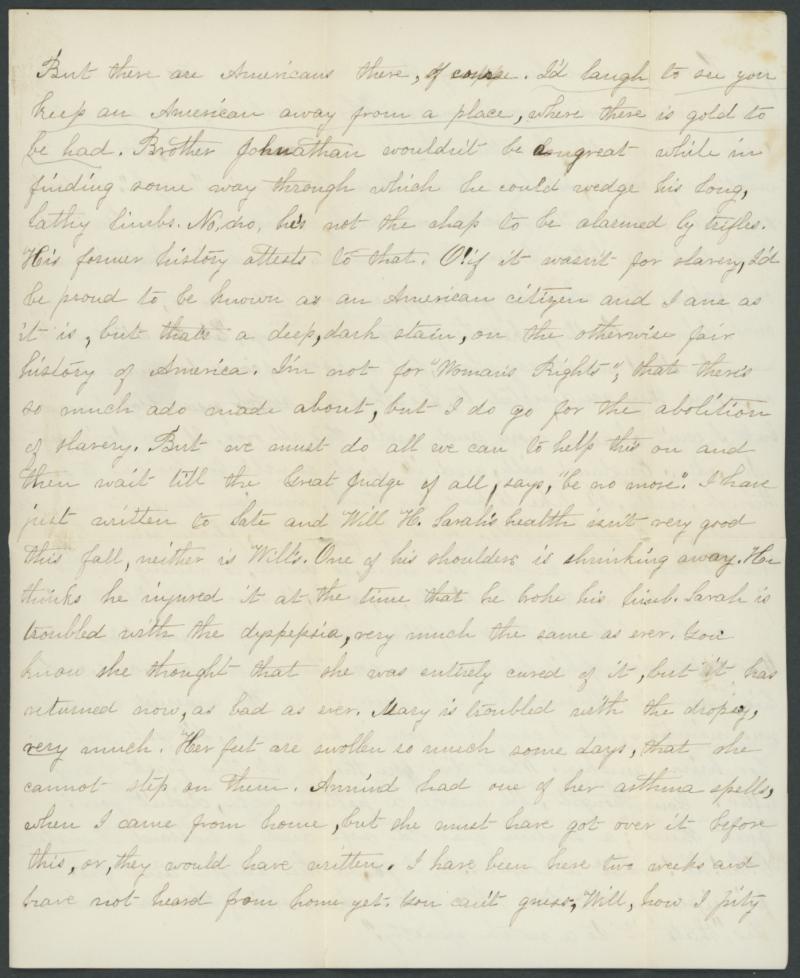 But there are Americans there, of course. I'd laugh to see you
keep an American away from a place, where there is gold to
be had. Brother Johnathan wouldn't be a great while in
finding some way through which he could wedge his long,
lathy limbs. No, no, he's not the chap to be alarmed by trifles.
His former history attests to that. O! if it wasn't for slavery, I'd
be proud to be known as an American citizen and I am as
it is, but thats a deep, dark stain, on the otherwise fair
history of America. I'm not for "Woman's Rights", that there's
so much ado made about, but I do go for the abolition
of slavery. But we must do all we can to help this on and
then wait till the Great Judge of all, says, "be no more". I have
just written to Sate and Will H. Sarah's health isn't very good
this fall, neither is Will's. One of his shoulders is shrinking away. He
thinks he injured it at the time that he broke his limb. Sarah is
troubled with the dyspepsia, very much the same as ever. You
know she thought that she was entirely cured of it, but it has
returned now, as bad as ever. Mary is troubled with the dropsy,
very much. Her feet are swollen so much some days, that she
cannot step on them. had one of her asthma spells,
when I came from home, but she must have got over it before
this, or, they would have written. I have been here two weeks and
have not heard from home yet. You can't guess, Will, how I pity